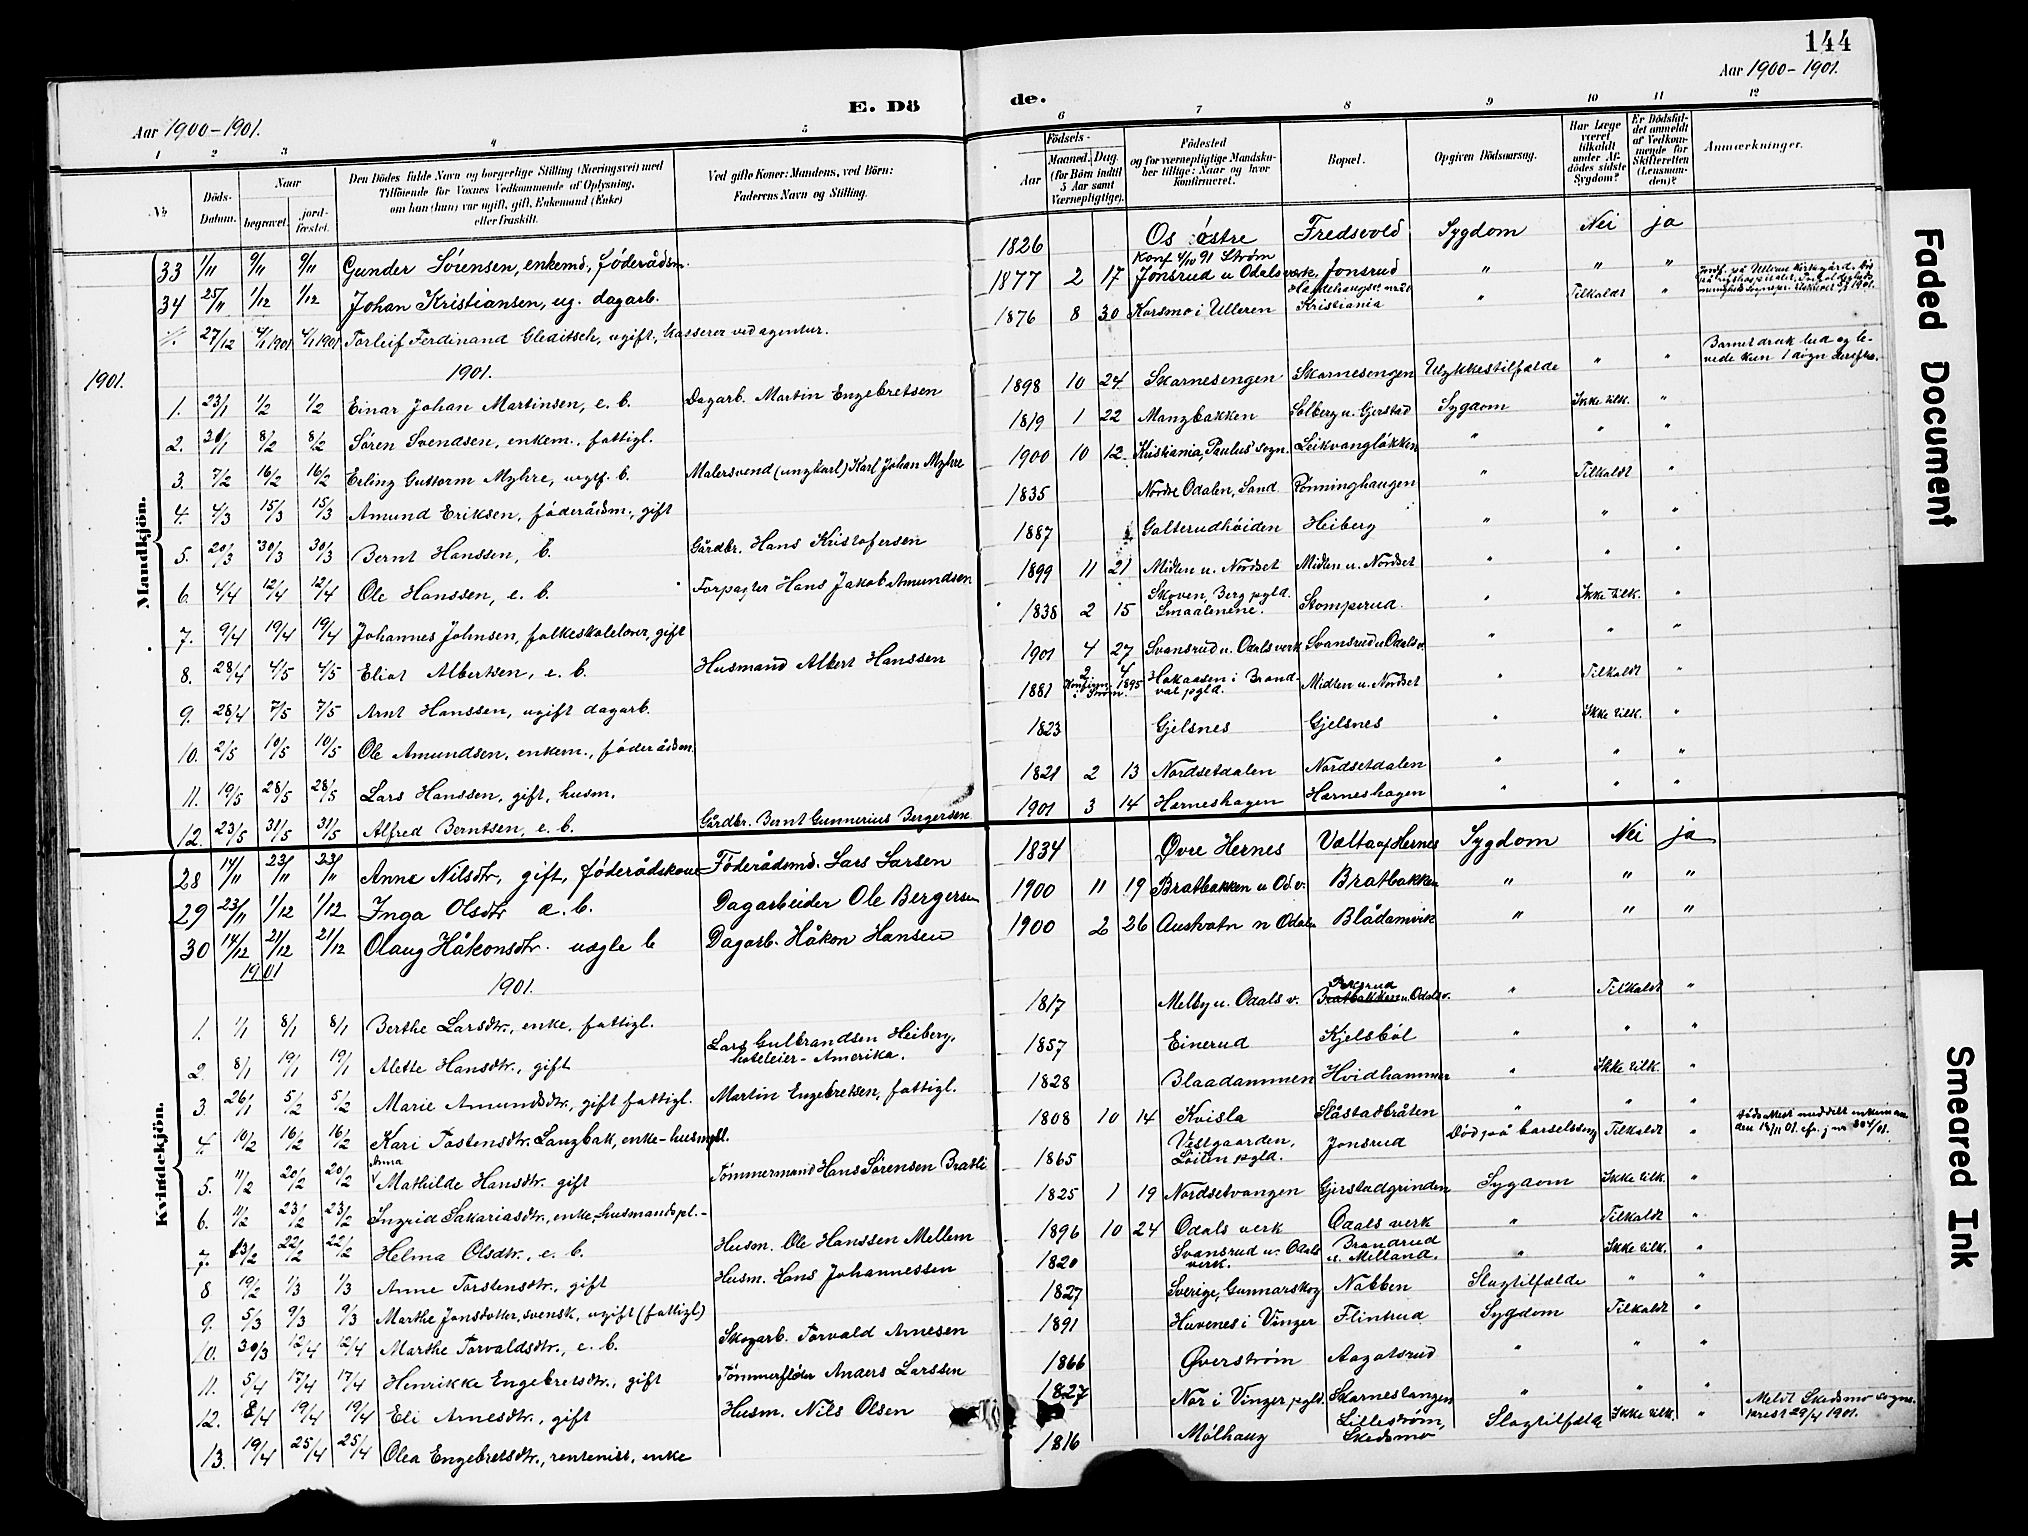 144
Aar 1900-1901.
Aar 1900-1901.
E. Dö de.
1 2 3 4 5 6 7 8 9 10 11 12
No
Döds-Datum.
Naar
begravet.
jord-fæstet.
Den Dödes fulde Navn og borgerlige Stilling (Næringsvei) med
Tilföiende for Voxnes Vedkommende af Oplysning,
om han (hun) var ugift, gift, Enkemand (Enke)
eller fraskilt.
Ved gifte Koner: Mandens, ved Börn:
Faderens Navn og Stilling.
Födsels-
Aar
Maaned. Dag.
(for Börn indtil
5 Aar samt
Værnepligtige).
Födested
og for værnepligtige Mandska-
ber tillige: Naar og hvor
konfirmeret.
Bopæl.
Opgiven Dödsaarsag.
Har Læge
været
tilkaldt
under Af-
dödes sidste
Sygdom?
Er Dödsfal-
det anmeldt
af Vedkom-
mende for
Skifteretten
(Lensman-
den)?
Anmærkninger.
Mandkjön.
33 1/11 9/11 9/11 Gunder Sörensen, enkemd, föderådsm. 1826 Os östre Fredsvold Sygdom Nei ja
34 25/11 1/12 1/12 Johan Kristiansen, ug. dagarb. 1877 2 17 Konf 4/10 91 Ström Jonsrud u Odalsverk Jonsrud " " "
27/12 4/1 1901 4/1 1901 Torleif Ferdinand Gleditsch, ugift, kasserer ved agentur. 1876 8 30 Korsmo i Ulleren Kristiania " Tilkaldt "
1901. 1901.
1. 23/1 1/2 1/2 Einar Johan Martinsen, e. b. Dagarb. Martin Engebretsen 1898 10 24 Skarnesengen Skarnesengen Ulykkestilfælde " " Barnet drak lud og le-
vede kun 1 døgn derefter.
2. 30/1 8/2 8/2 Sören Svendsen, enkem., fattigl. 1819 1 22 Mangbakken Solberg u. Gjerstad Sygdom Ikke tilk. "
3. 7/2 16/2 16/2 Erling Guttorm Myhre, uegtf. b. Malersvend (ungkarl) Karl Johan Myhre 1900 10 12 Kristiania, Paulus sogn. Leikvangløkken " " "
4. 4/3 15/3 15/3 Amund Eriksen, föderådsm., gift 1835 Nordre Odalen, Sand Rönninghaugen " Tilkaldt "
5. 20/3 30/3 30/3 Bernt Hanssen, b. Gårdbr. Hans Kristofersen 1887 Galterudhöiden Heiberg " " "
6. 4/4 12/4 12/4 Ole Hanssen, e. b. Forpagter Hans Jakob Amundsen 1899 11 21 Midten u. Nordset Midten u. Nordset " " "
7. 9/4 19/4 19/4 Johannes Johnsen, folkeskolelærer, gift 1838 2 15 Skoven, Berg pgld. Smaalenene. Stomperud " Ikke tilk. "
8. 28/4 4/5 4/5 Eliot Albertsen, e. b. Husmand Albert Hanssen 1901 4 27 Svansrud u. Odalsverk Svansrud u Odalsv. " " "
9. 28/4 7/5 7/5 Arnt Hanssen, ugift dagarb. 1881 2 4 Konfirm. 1895 i Ström. Hakaasen i Brand-
val pgld. Midten u. Nordset " Tilkaldt "
10. 2/5 10/5 10/5 Ole Amundsen, enkem., föderådsm. 1823 Gjelsnes Gjelsnes " Ikke tilk. "
11. 19/5 28/5 28/5 Lars Hanssen, gift, husm. 1821 2 13 Nordsetdalen Nordsetdalen " " "
12. 23/5 31/5 31/5 Alfred Berntsen, e. b. Gårdbr. Bernt Gunnerius Bergersen 1901 3 14 Harneshagen Harneshagen " " "
Kvindekjön.
28 14/11 23/11 23/11 Anne Nilsdtr, gift, föderådskone Föderådsmd. Lars Larsen 1834 Øvre Hernes Valta af Hernes Sygdom Nei ja
29 23/11 1/12 1/12 Inga Olsdtr æ. b. Dagarbeider Ole Bergersen 1900 11 19 Bratbakken u Od.v. Bratbakken " " "
30 14/12 21/12 21/12 Olaug Håkonsdtr. uægte b Dagarb. Håkon Hansen 1900 2 26 Austvatn n Odalen Blådamvik " " "
1901 1901.
1. 1/1 8/1 8/1 Berthe Larsdtr., enke, fattigl. 1817 Melby u. Odals v. Bratbakken u. Odalsv. " Tilkaldt "
2. 8/1 19/1 19/1 Alette Hansdtr., gift Lars Gulbrandsen Heiberg,
hoteleier - Amerika. 1857 Einerud Kjelsböl " " "
3. 26/1 5/2 5/2 Marie Amundsdtr., gift fattigl. Martin Engebretsen, fattigl. 1828 Blaadammen Hvidhammer " Ikke tilk. "
4. 10/2 16/2 16/2 Kari Tostensdtr. Langbak, enke - husmspl. 1808 10 14 Kvisla Slåstadbråten " " "
5. 11/2 20/2 20/2 Anna Mathilde Hansdtr. gift Tömmermand Hans Sörensen Bratli 1865 Vestgaarden, Löiten pgld. Jonsrud Död på barselseng Tilkaldt " Dödsattest meddelt enkemann
den 18/11 01. cfr. j nr 304/01.
6. 11/2 23/2 23/2 Ingrid Sakariasdtr., enke, husmandspl. - 1825 1 19 Nordsetvangen Gjerstadgrinden Sygdom Ikke tilk. "
7. 13/2 22/2 22/2 Helma Olsdtr., e. b. Husm. Ole Hanssen Mellem 1896 10 24 Odals verk Odals verk " Tilkaldt "
8 19/2 1/3 1/3 Anne Torstensdtr., gift Husm. Hans Johannessen 1820 Svansrud u. Odals verk. Brandrud u. Melland. " Ikke tilk. "
9. 5/3 9/3 9/3 Marthe Jonsdotter, svensk, ugift (fattigl) 1827 Sverige, Gunnarskog Nabben Slagtilfælde " "
10. 30/3 12/4 12/4 Marthe Torvaldsdtr., e. b. Skogarb. Torvald Arnesen 1891 Huvenes i Vinger Flintrud Sygdom Tilkaldt "
11. 5/4 17/4 17/4 Henrikke Engebretsdtr., gift Tömmerflöter Anders Larssen 1866 Øverström Aagotsrud " " "
12. 8/4 19/4 19/4 Eli Arnesdtr., gift Husm. Nils Olsen 1827 Nor i Vinger pgld. Skarnestangen " " "
13. 19/4 25/4 25/4 Olea Engebretsdtr., rentenist, enke 1816 Mölhaug Lilleström, Skedsmo Slagtilfælde Ikke tilk. " Meldt Skedsmo sogne-
prest 29/4 1901.
Faded Document
Smeared Ink